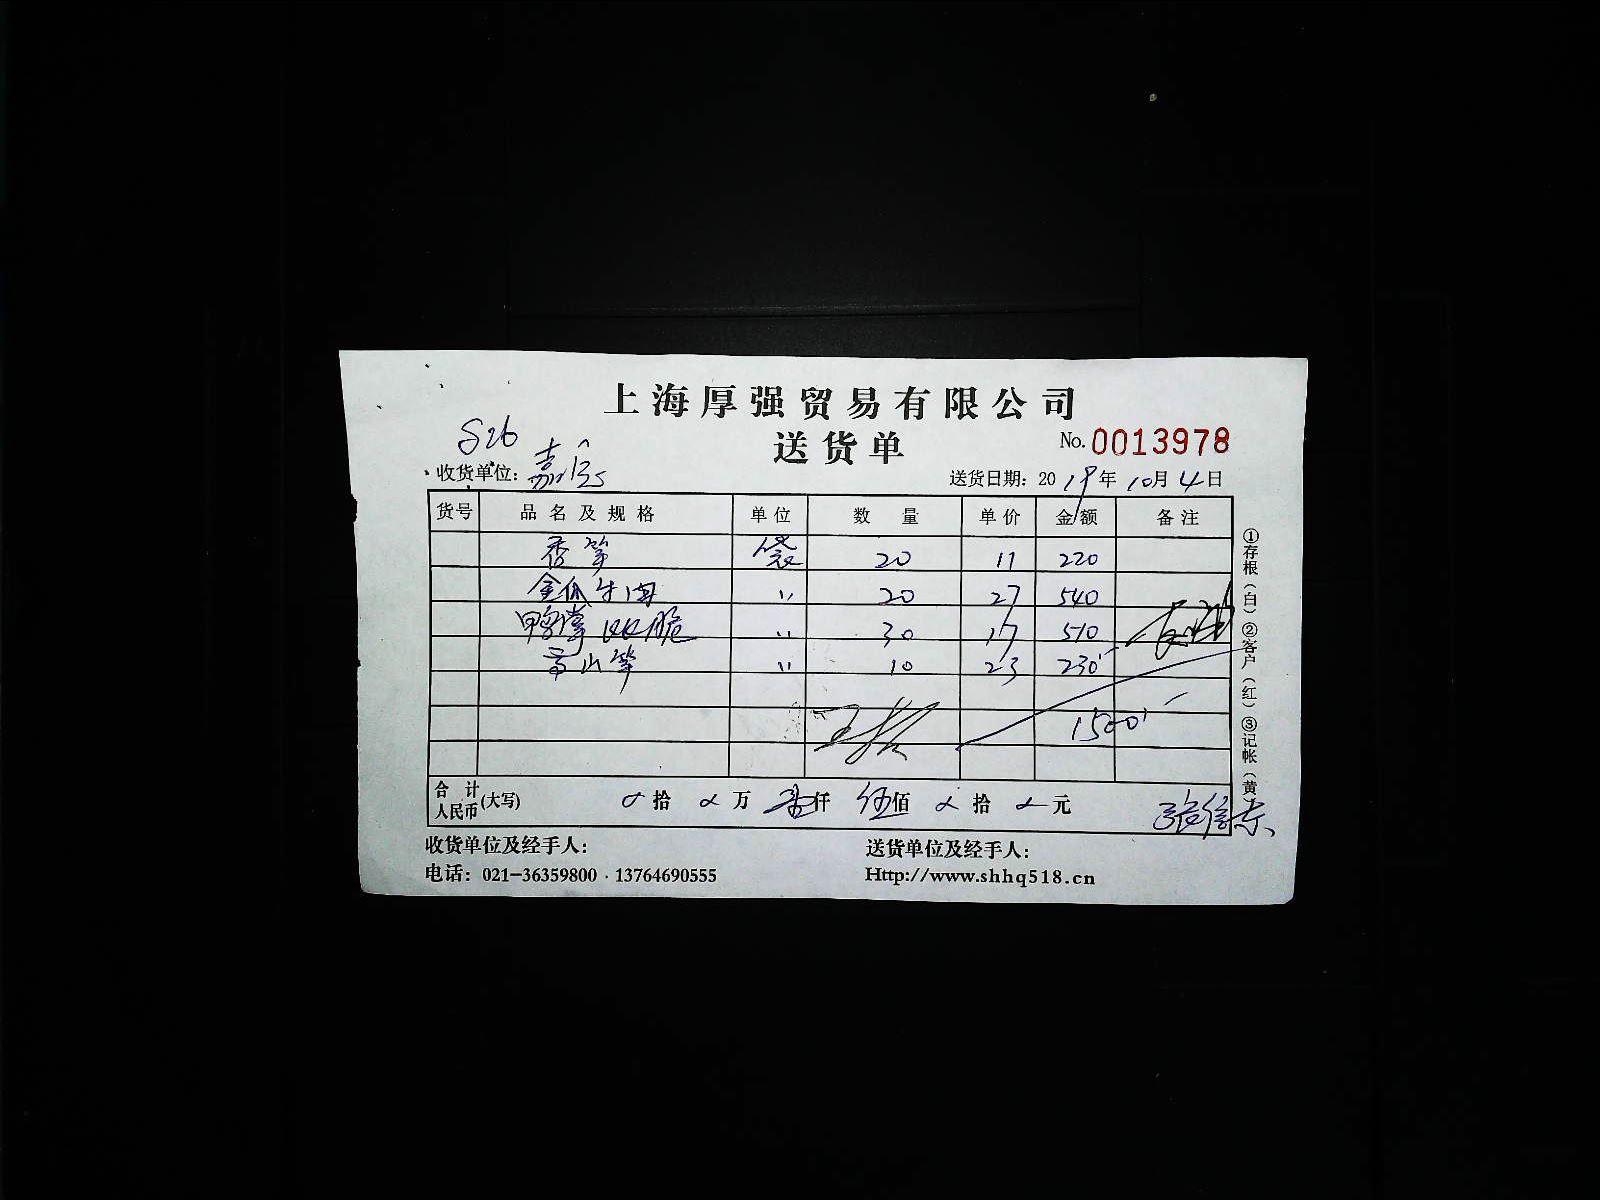 上海厚强贸易有限公司
送货单
No. 0013978
S26
收货单位：嘉
送货日期：2019年10月4日
货号 品名及规格 单位 数量 单价 金额 备注
香笋 袋 20 11 220
金瓜牛 〃 20 27 540
鸭掌 脆 〃 30 17 510
高山笋 〃 10 23 230
1500
合计人民币(大写) 拾 万 壹仟 伍佰 拾 元
①存根（白）②客户（红）③记帐（黄
收货单位及经手人： 送货单位及经手人：
电话：021-36359800 · 13764690555 Http://www.shhq518.cn